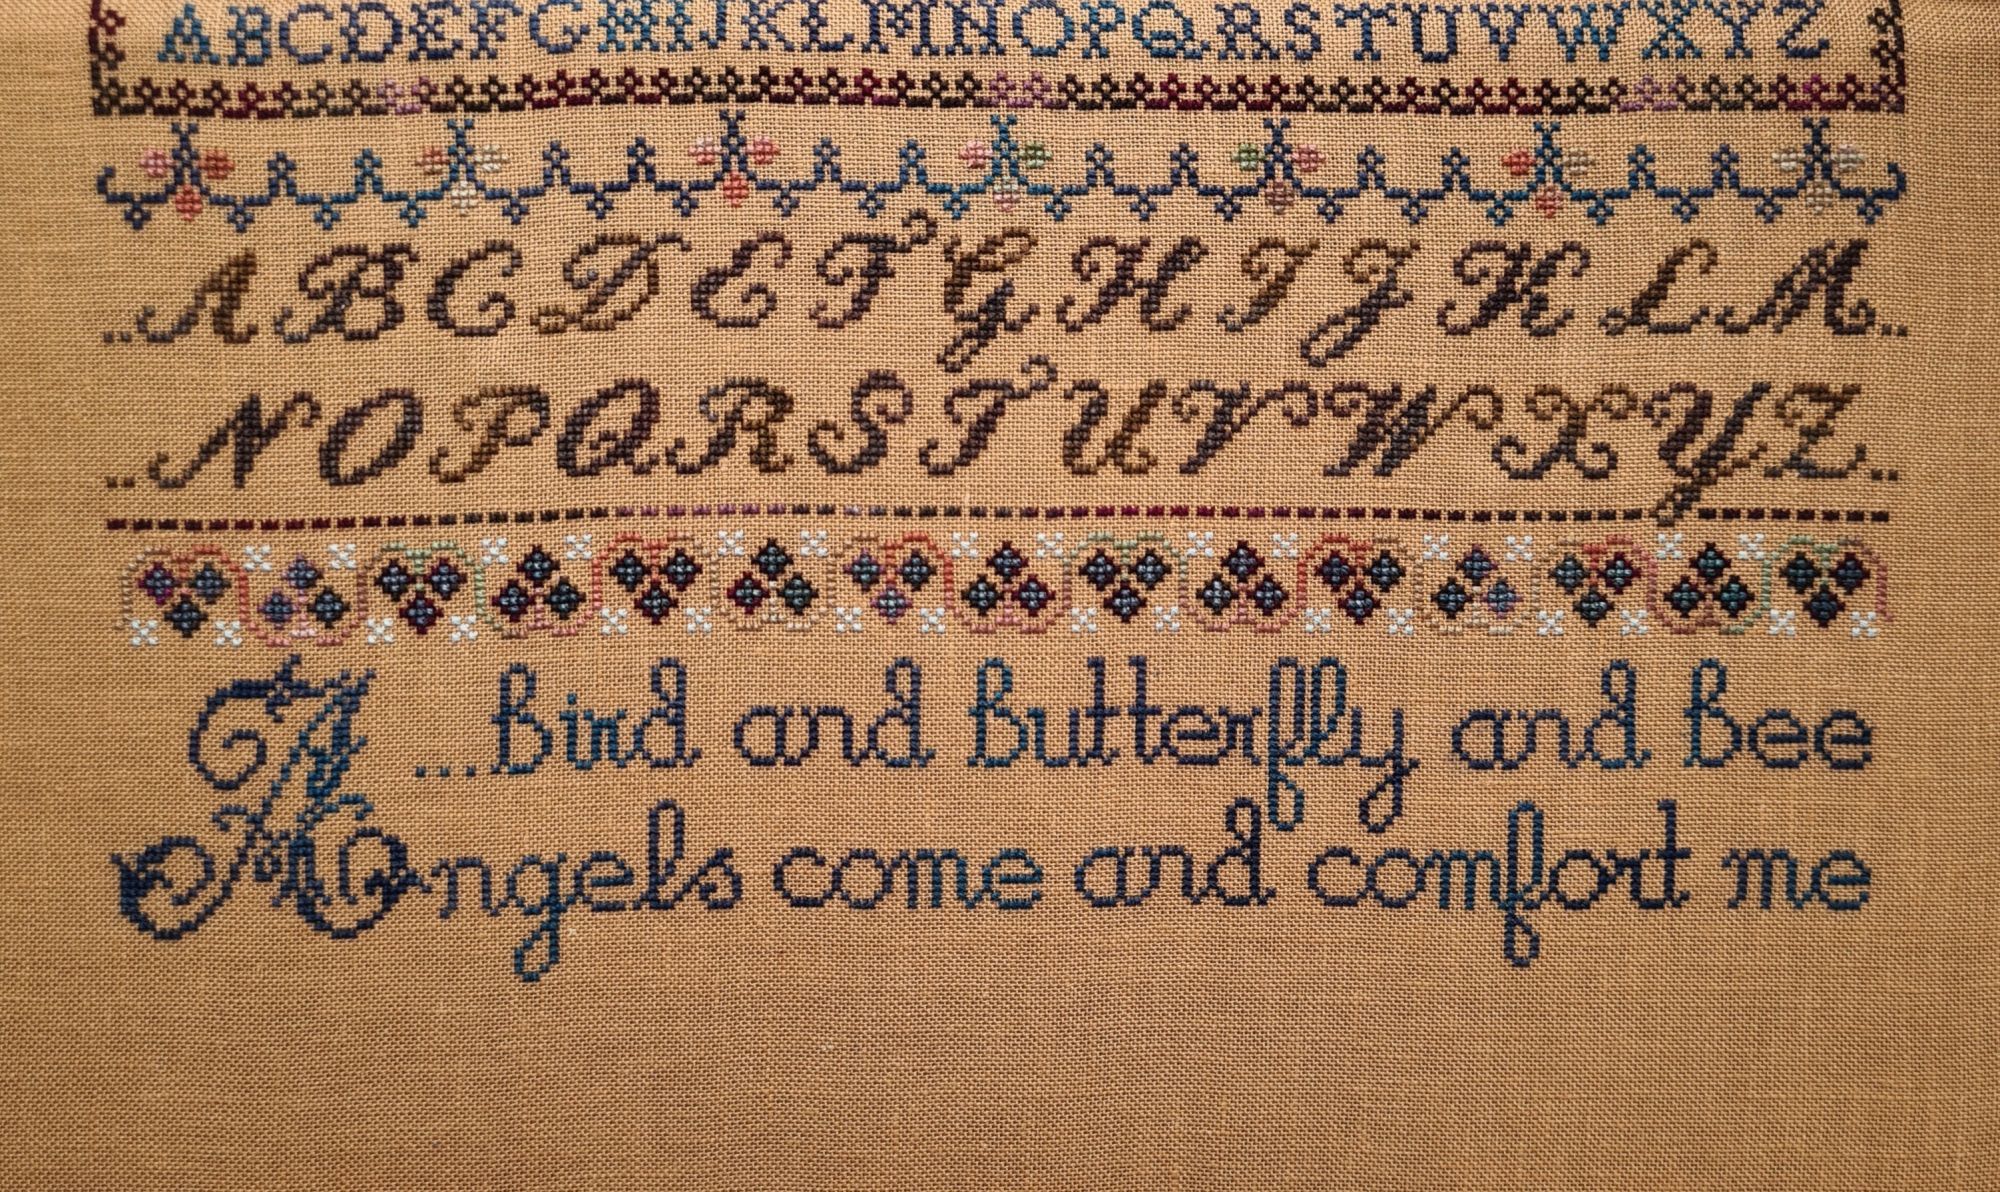 ABCDEFGHIJKLMNOPQRSTUVWXYZ
..ABCDEFGHIJKLM..
..NOPQRSTUVWXYZ..
A ...Bird and Butterfly and Bee
Angels come and comfort me